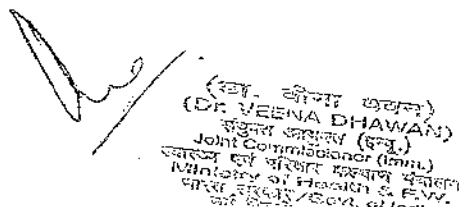 (डा. वीना धवन)
(DR. VEENA DHAWAN)
संयुक्त आयुक्त (इम्यू.)
Joint Commissioner (Imm.)
स्वास्थ्य एवं परिवार कल्याण मंत्रालय
Ministry of Health & F.W.
भारत सरकार/Govt. of